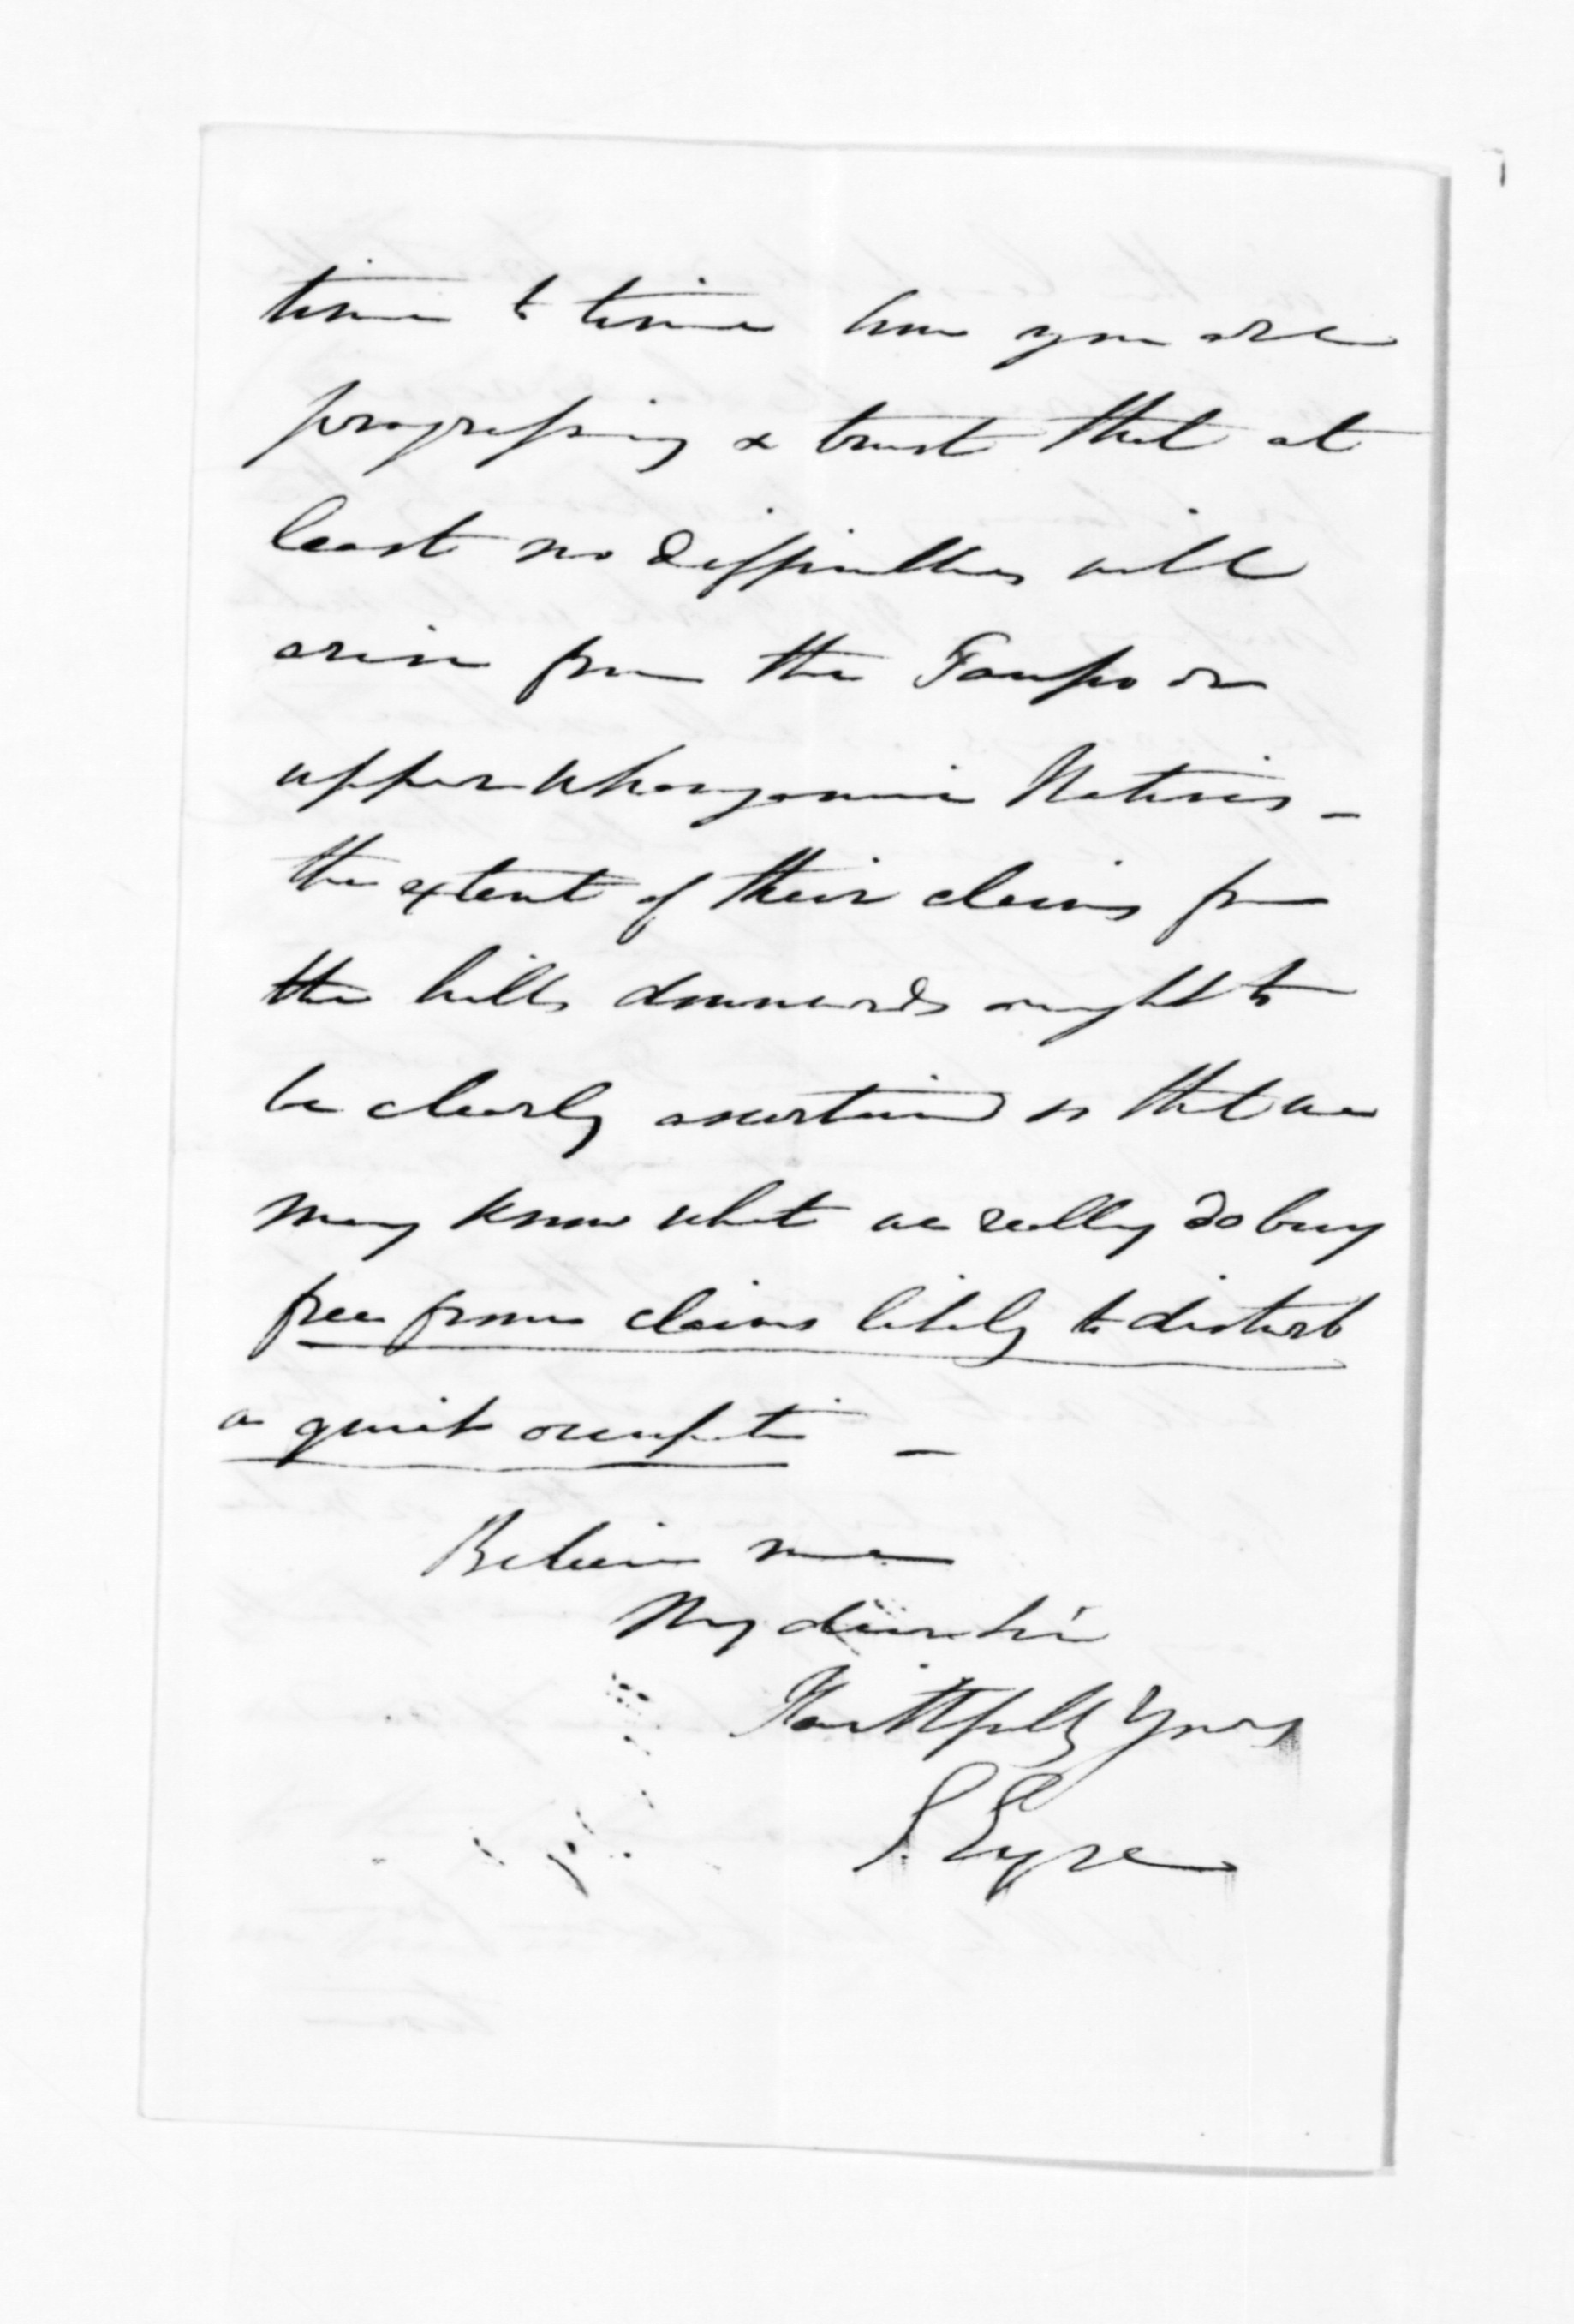 time to time how you are
progressing & trust that at
least no difficulties will
arise from the Taupo or
upper Whanganui Natives _
the extent of their claims from
the hills downwards ought to
be clearly ascertained so that we
may know what we really do buy
free from claims likely to disturb
a quiet occupation _
Believe me
My dear Sir
Faithfully Yours
E. Eyre